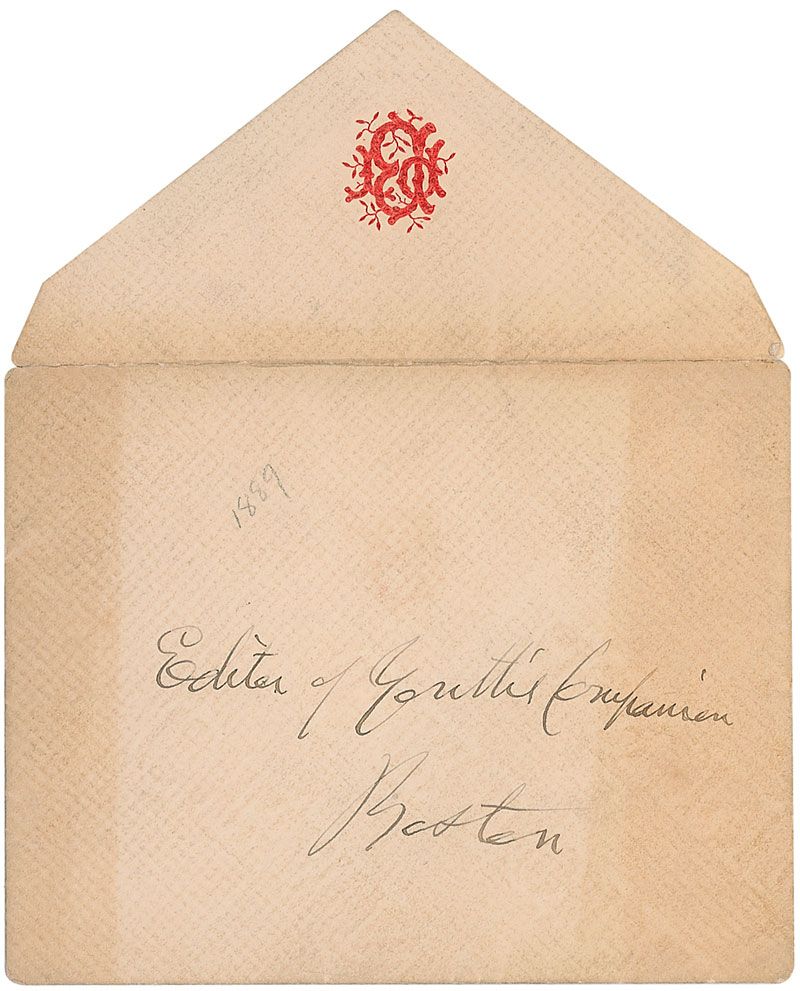 1889
Editor of Youth's Companion
Boston